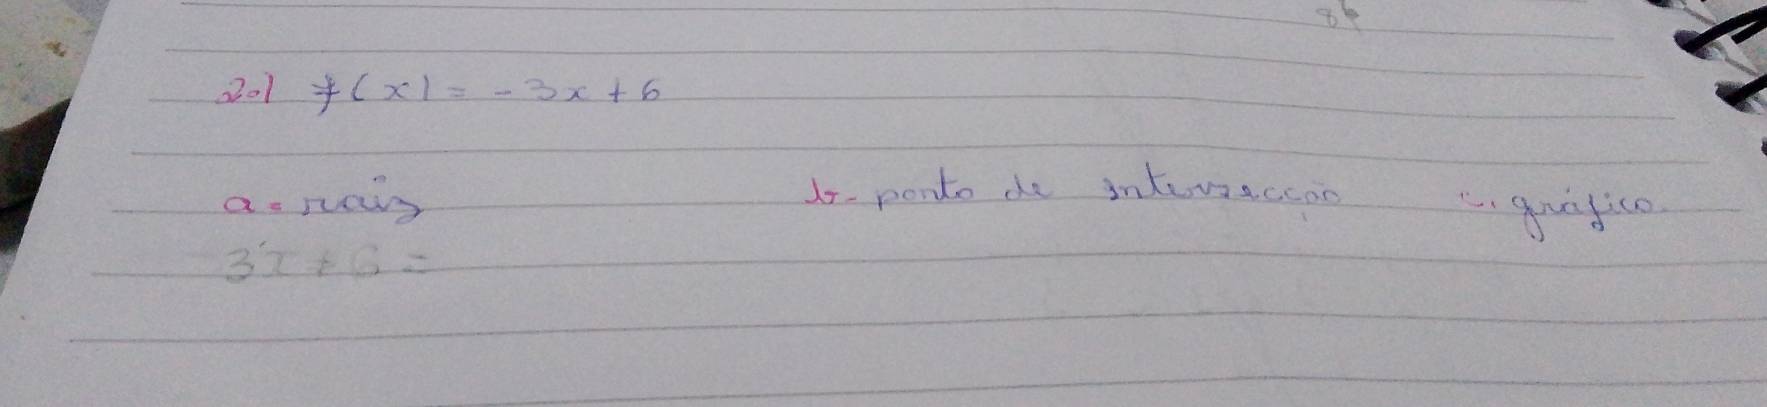 84
20) f(x) = -3x + 6
a = raiz b- ponto de intersecção c. gráfico.
3x + 6 =